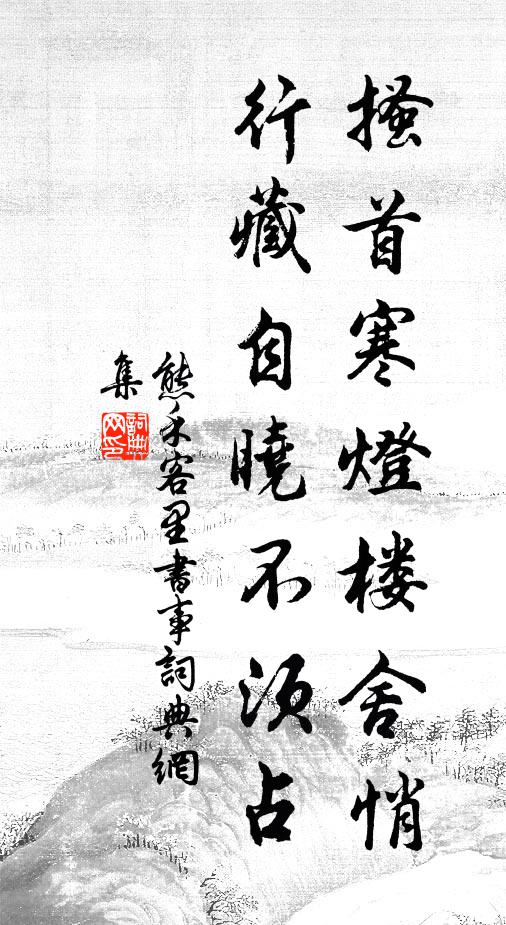 搔首寒燈楼舍悄
行藏自曉不須占
熊禾客里書事詞典網
集
詞典網印